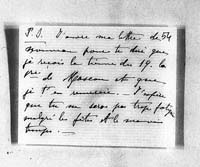 P.S. J'ouvre ma lettre de
pour te dire que
je reçois la tienne du 19. la
de et que
je t'en remercie. J'espère
que tu ne seras pas trop
malgré les fêtes et le mauvais
temps. —